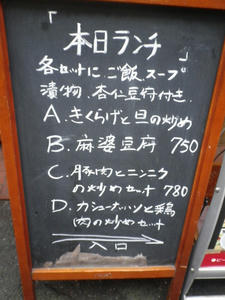 「本日ランチ」
各セットに ご飯.スープ
漬物.杏仁豆付付き.
A. きくらげと旦の炒め
B. 麻婆豆腐 750
C. 豚肉とニンニク
の炒めセット 780
D. カシューナッツと鶏
肉の炒めセット
入口